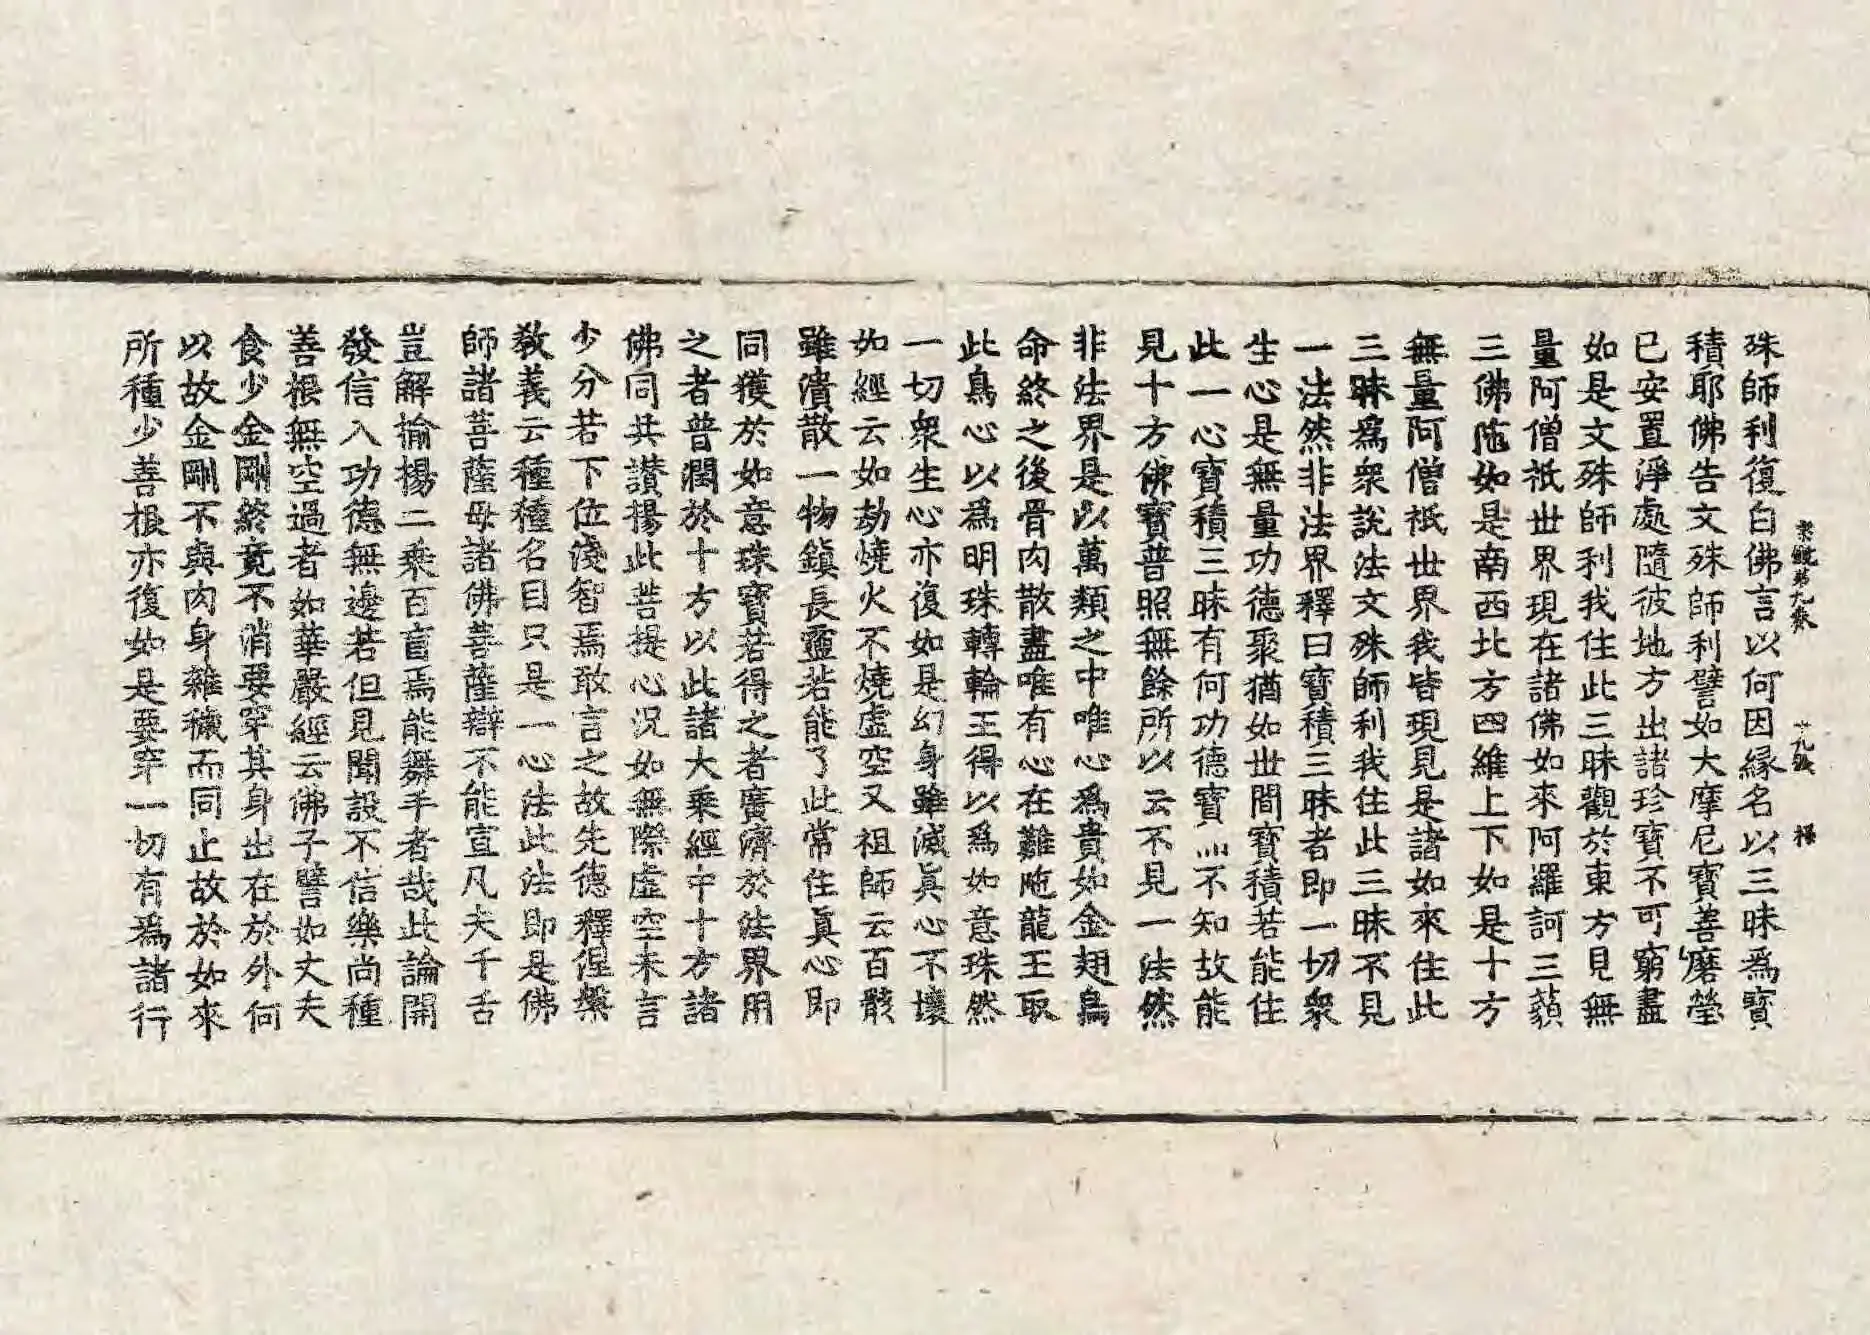 宗鏡第九卷 十九張 禄
殊師利復白佛言以何因緣名以三昧爲寶
積耶佛告文殊師利譬如大摩尼寶善磨瑩
已安置淨處隨彼地方出諸珍寶不可窮盡
如是文殊師利我住此三昧觀於東方見無
量阿僧祇世界現在諸佛如來阿羅訶三藐
三佛陁如是南西北方四維上下如是十方
無量阿僧祇世界我皆現見是諸如來住此
三昧爲衆說法文殊師利我住此三昧不見
一法然非法界釋曰寶積三昧者即一切衆
生心是無量功德聚猶如世間寶積若能住
此一心寶積三昧有何功德寶而不知故能
見十方佛寶普照無餘所以云不見一法然
非法界是以萬類之中唯心爲貴如金翅鳥
命終之後骨肉散盡唯有心在難陁龍王取
此鳥心以爲明珠轉輪王得以爲如意珠然
一切衆生心亦復如是幻身雖滅眞心不壞
如經云如劫燒火不燒虛空又祖師云百骸
雖潰散一物鎭長靈若能了此常住眞心即
同獲於如意珠寶若得之者廣濟於法界用
之者普潤於十方以此諸大乘經中十方諸
佛同共讚揚此菩提心況如無際虛空未言
少分若下位淺智焉敢言之故先德釋涅槃
敎義云種種名目只是一心法此法即是佛
師諸菩薩母諸佛菩薩辯不能宣凡夫千舌
豈解揄揚二乘百盲焉能舞手者哉此論開
發信入功德無邊若但見聞設不信樂尚種
善根無空過者如華嚴經云佛子譬如丈夫
食少金剛終竟不消要穿其身出在於外何
以故金剛不與肉身雜穢而同止故於如來
所種少善根亦復如是要穿一切有爲諸行